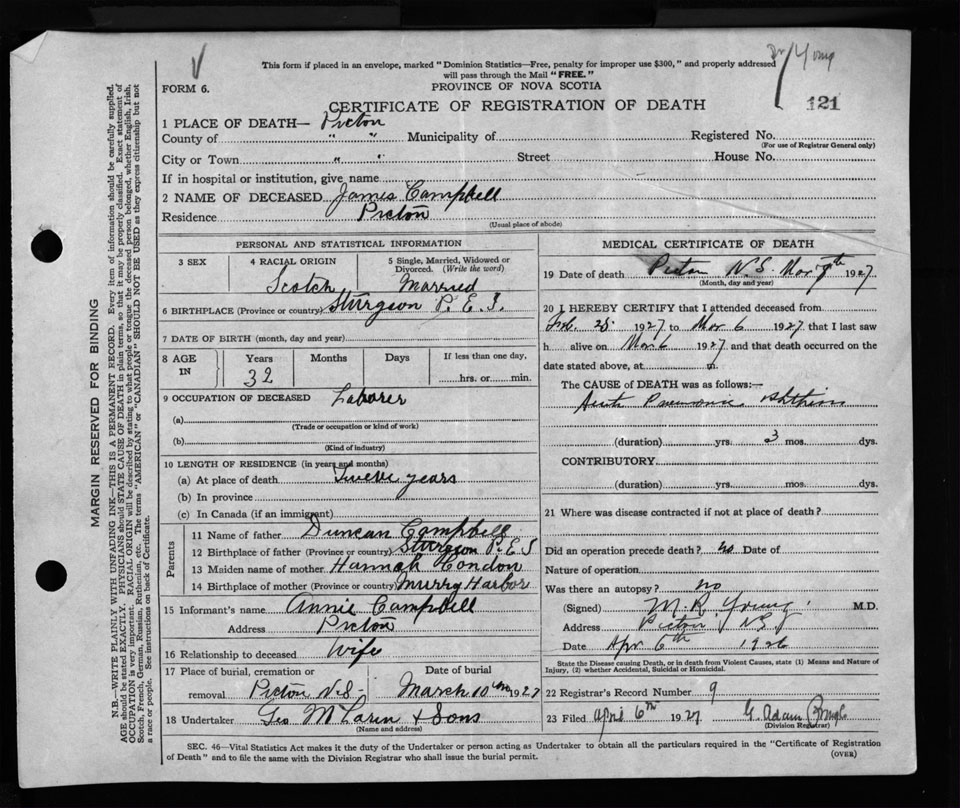 This form if placed in an envelope, marked "Dominion Statistics—Free, penalty for improper use $300," and properly addressed
will pass through the Mail "FREE."
FORM 6.
PROVINCE OF NOVA SCOTIA
CERTIFICATE OF REGISTRATION OF DEATH
121
1 PLACE OF DEATH— Pictou
County of " " Municipality of Registered No.
(For use of Registrar General only)
City or Town " " Street House No.
If in hospital or institution, give name
2 NAME OF DECEASED James Campbell
Residence Pictou
(Usual place of abode)
MARGIN RESERVED FOR BINDING
N.B.—WRITE PLAINLY WITH UNFADING INK—THIS IS A PERMANENT RECORD. Every item of information should be carefully supplied.
AGE should be stated EXACTLY. PHYSICIANS should STATE CAUSE OF DEATH in plain terms, so that it may be properly classified. Exact statement of
OCCUPATION is very important. RACIAL ORIGIN will be described by stating to what people or tongue the deceased person belonged, whether English, Irish,
Scotch, French, German, Russian, Ruthenian, etc. The terms "AMERICAN" or "CANADIAN" SHOULD NOT BE USED as they express citizenship but not
a race or people. See instructions on back of Certificate.
PERSONAL AND STATISTICAL INFORMATION
3 SEX 4 RACIAL ORIGIN 5 Single, Married, Widowed or
Divorced. (Write the word)
Scotch Married
6 BIRTHPLACE (Province or country) Sturgeon P. E. I.
7 DATE OF BIRTH (month, day and year)
8 AGE Years Months Days If less than one day,
IN 32 hrs. or min.
9 OCCUPATION OF DECEASED Laborer
(a)
(Trade or occupation or kind of work)
(b)
(Kind of industry)
10 LENGTH OF RESIDENCE (in years and months)
(a) At place of death Twelve years
(b) In province
(c) In Canada (if an immigrant)
Parents
11 Name of father Duncan Campbell
12 Birthplace of father (Province or country) Sturgeon P. E I
13 Maiden name of mother Hannah Condon
14 Birthplace of mother (Province or country) Murry Harbor
15 Informant's name Annie Campbell
Address Pictou
16 Relationship to deceased Wife
17 Place of burial, cremation or Date of burial
removal Pictou N.S- March 10th 1927
18 Undertaker Geo McLaren & Sons
(Name and address)
MEDICAL CERTIFICATE OF DEATH
19 Date of death Pictou N.S. Mar 7th 1927
(Month, day and year)
20 I HEREBY CERTIFY that I attended deceased from
Feb. 25 1927 to Mar 6 1927 that I last saw
h alive on Mar 6 1927 and that death occurred on the
date stated above, at m.
The CAUSE of DEATH was as follows:—
Acute Pneumonic Phthisis
(duration) yrs. 3 mos. dys.
CONTRIBUTORY
(duration) yrs. mos. dys.
21 Where was disease contracted if not at place of death?
Did an operation precede death? no Date of
Nature of operation
Was there an autopsy? no
(Signed) M. R. Young M.D.
Address Pictou N.S
Date Apr 6th 1926
State the Disease causing Death, or in death from Violent Causes, state (1) Means and Nature of
Injury, (2) whether Accidental, Suicidal or Homicidal.
22 Registrar's Record Number 9
23 Filed April 6th 1927 G. Adam
(Division Registrar)
SEC. 46—Vital Statistics Act makes it the duty of the Undertaker or person acting as Undertaker to obtain all the particulars required in the "Certificate of Registration
of Death" and to file the same with the Division Registrar who shall issue the burial permit. (OVER)